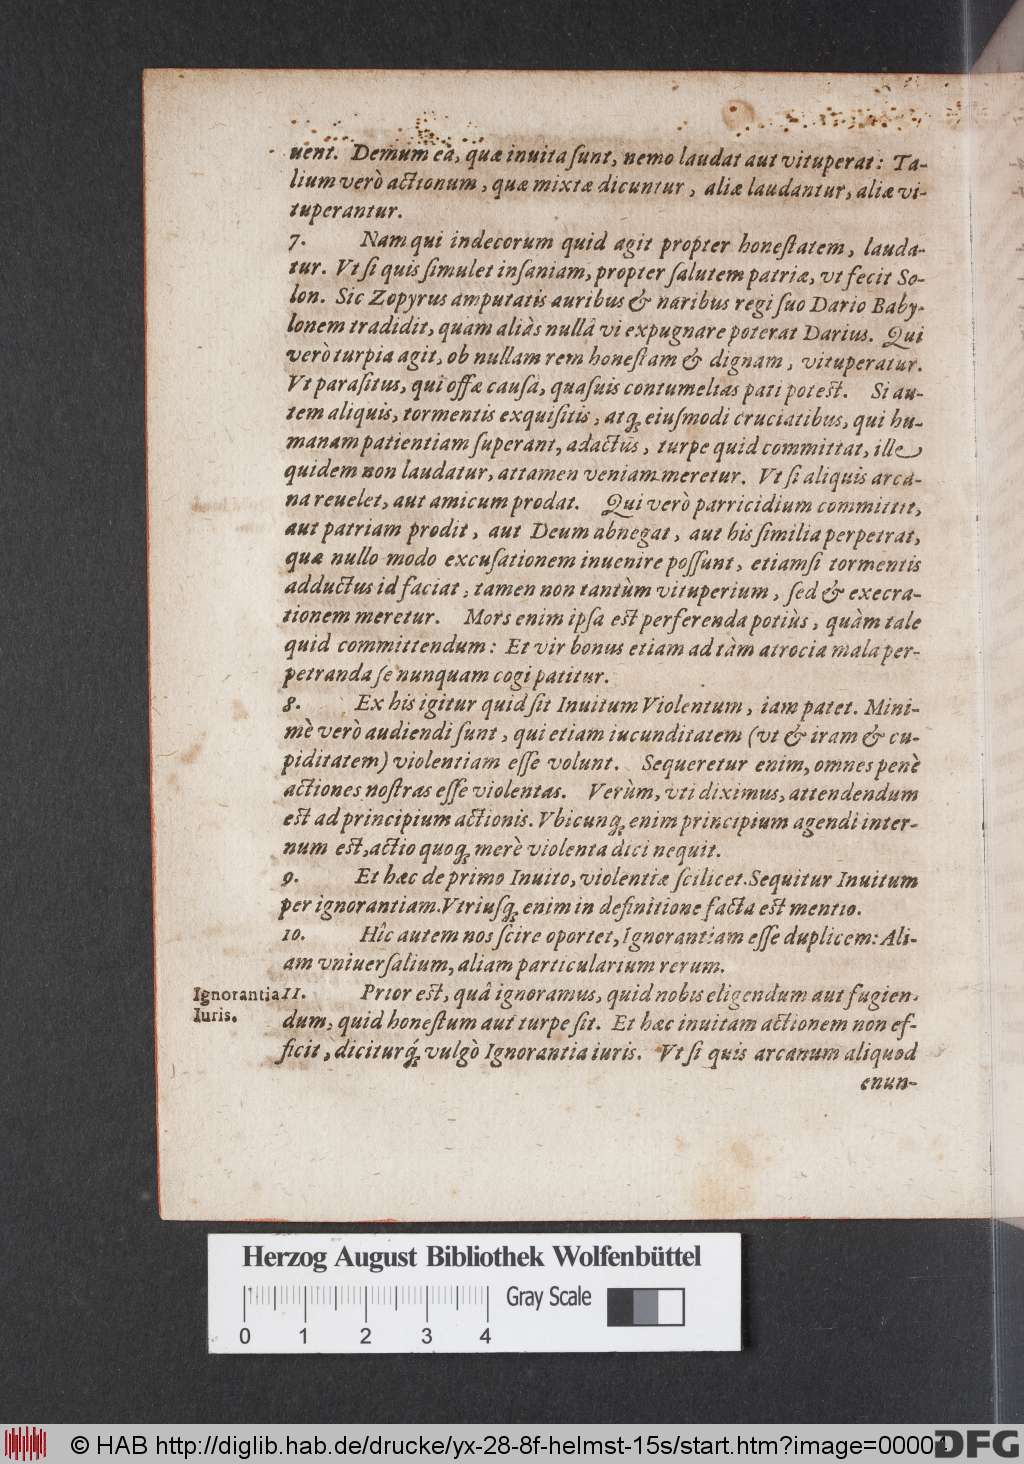 uent. Demum ea, quæ inuita ſunt, nemo laudat aut vituperat: Ta-
lium verò actionum, quæ mixtæ dicuntur, aliæ laudantur, aliæ vi-
tuperantur.
7. Nam qui indecorum quid agit propter honeſtatem, lauda-
tur. Vt ſi quis ſimulet inſaniam, propter ſalutem patriæ, vt fecit So-
lon. Sic Zopyrus amputatis auribus & naribus regi ſuo Dario Baby-
lonem tradidit, quam aliàs nullâ vi expugnare poterat Darius. Qui
verò turpia agit, ob nullam rem honeſtam & dignam, vituperatur.
Vt paraſitus, qui offæ causâ, quaſuis contumelias pati poteſt. Si au-
tem aliquis, tormentis exquiſitis, atq; eiuſmodi cruciatibus, qui hu-
manam patientiam ſuperant, adactus, turpe quid committat, ille
quidem non laudatur, attamen veniam meretur. Vt ſi aliquis arca-
na reuelet, aut amicum prodat. Qui verò parricidium committit,
aut patriam prodit, aut Deum abnegat, aut his ſimilia perpetrat,
quæ nullo modo excuſationem inuenire poſſunt, etiamſi tormentis
adductus id faciat, tamen non tantùm vituperium, ſed & execra-
tionem meretur. Mors enim ipſa eſt perferenda potiùs, quàm tale
quid committendum: Et vir bonus etiam ad tàm atrocia mala per-
petranda ſe nunquam cogi patitur.
8. Ex his igitur quid ſit Inuitum Violentum, iam patet. Mini-
mè verò audiendi ſunt, qui etiam iucunditatem (vt & iram & cu-
piditatem) violentiam eſſe volunt. Sequeretur enim, omnes penè
actiones noſtras eſſe violentas. Verùm, vti diximus, attendendum
eſt ad principium actionis. Vbicunq; enim principium agendi inter-
num eſt, actio quoq; merè violenta dici nequit.
9. Et hæc de primo Inuito, violentiæ ſcilicet. Sequitur Inuitum
per ignorantiam. Vtriuſq; enim in definitione facta eſt mentio.
10. Hîc autem nos ſcire oportet, Ignorantiam eſſe duplicem: Ali-
am vniuerſalium, aliam particularium rerum.
Ignorantia
Iuris.
11. Prior eſt, quâ ignoramus, quid nobis eligendum aut fugien-
dum, quid honeſtum aut turpe ſit. Et hæc inuitam actionem non ef-
ficit, diciturq́; vulgò Ignorantia iuris. Vt ſi quis arcanum aliquod
enun-
Herzog August Bibliothek Wolfenbüttel
Gray Scale
0 1 2 3 4
© HAB http://diglib.hab.de/drucke/yx-28-8f-helmst-15s/start.htm?image=00004
DFG